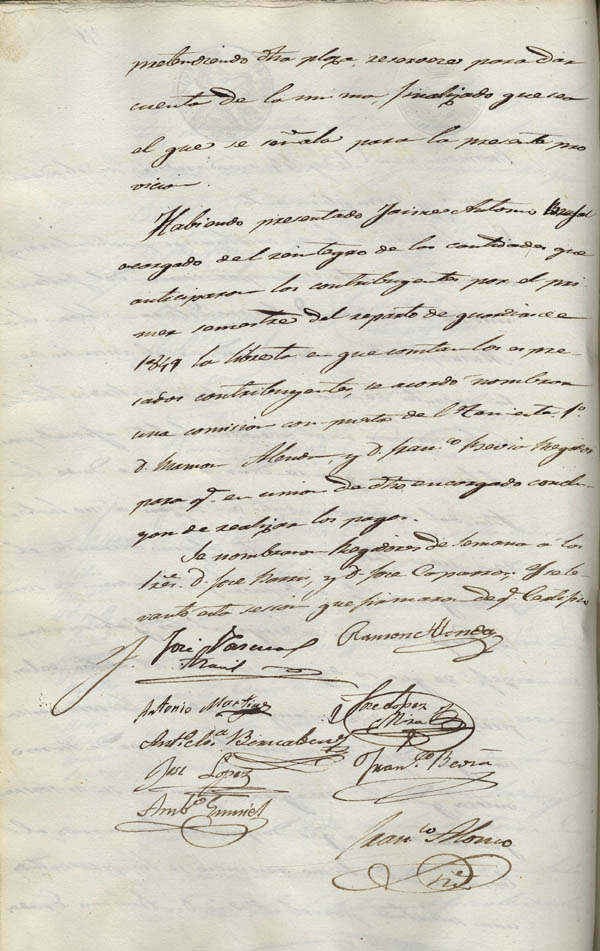 pretendiendo dha plaza, reservarse para dar
cuenta de la misma, finalizado que sea
el que se señala para la presente pro
vicion.
Habiendo presentado Jaime Antonio
encargado del reintegro de las cantidades que
anticiparon los contribuyentes por el pri
mer semestre del reparto de
1849 la libreta en que constan los espre-
sados contribuyentes, se acordó nombrar
una comision compuesta del Teniente 1º
D. Ramon Alonda, y D. Franco Bevia Regidor
para q. en union de dho encargado conclu-
yan de realizar los pagos.
Se nombraron Regidores de Semana á los
Sres. D. José y D. José Caparros; Y se le-
vantó esta sesion que firmaron de q. Certifico
José Pascual
Ramon Alonda
Antonio Martinez
José Lopez
Mira
Anto
José Lopez
Franco Bevia
Ambo
Franco Alonso
Srio